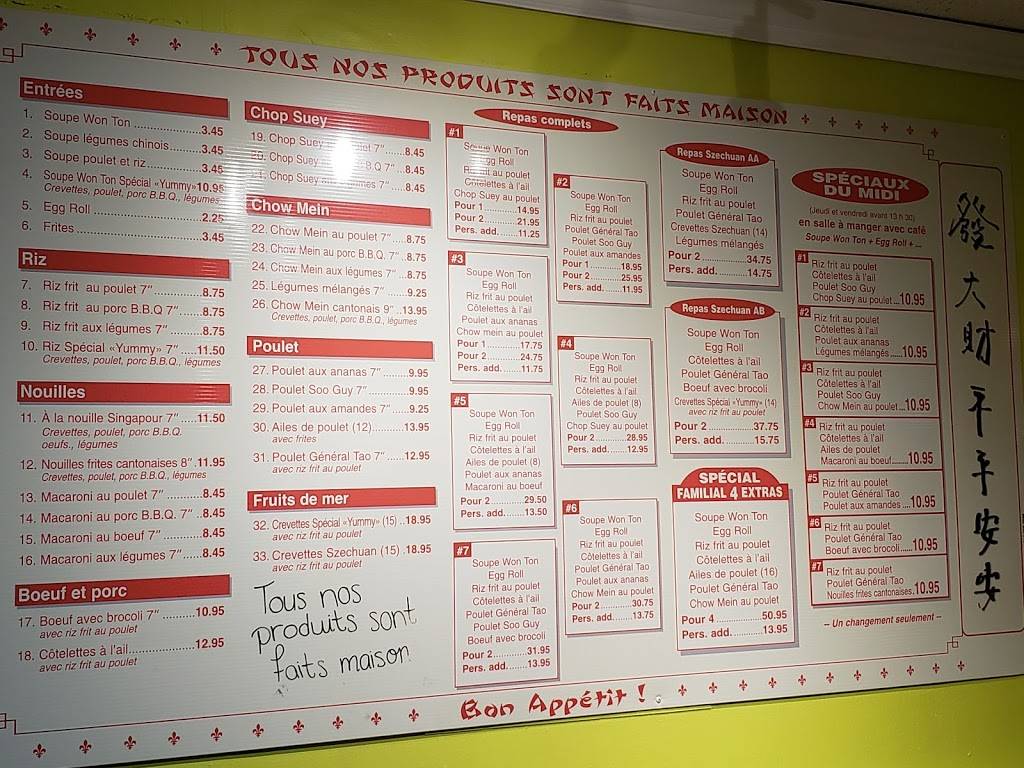 TOUS NOS PRODUITS SONT FAITS MAISON
Entrées
1. Soupe Won Ton 3.45
2. Soupe légumes chinois 3.45
3. Soupe poulet et riz 3.45
4. Soupe Won Ton Spécial «Yummy» 10.95
Crevettes, poulet, porc B.B.Q., légumes
5. Egg Roll 2.25
6. Frites 3.45
Riz
7. Riz frit au poulet 7" 8.75
8. Riz frit au porc B.B.Q 7" 8.75
9. Riz frit aux légumes 7" 8.75
10. Riz Spécial «Yummy» 7" 11.50
Crevettes, poulet, porc B.B.Q., légumes
Nouilles
11. À la nouille Singapour 7" 11.50
Crevettes, poulet, porc B.B.Q.
oeufs., légumes
12. Nouilles frites cantonaises 8" 11.95
Crevettes, poulet, porc B.B.Q., légumes
13. Macaroni au poulet 7" 8.45
14. Macaroni au porc B.B.Q. 7" 8.45
15. Macaroni au boeuf 7" 8.45
16. Macaroni aux légumes 7" 8.45
Boeuf et porc
17. Boeuf avec brocoli 7" 10.95
avec riz frit au poulet
18. Côtelettes à l'ail 12.95
avec riz frit au poulet
Chop Suey
19. Chop Suey poulet 7" 8.45
20. Chop Suey B.B.Q 7" 8.45
Chop Suey légumes 7" 8.45
Chow Mein
22. Chow Mein au poulet 7" 8.75
23. Chow Mein au porc B.B.Q. 7" 8.75
24. Chow Mein aux légumes 7" 8.75
25. Légumes mélangés 7" 9.25
26. Chow Mein cantonais 9" 13.95
Crevettes, poulet, porc B.B.Q., légumes
Poulet
27. Poulet aux ananas 7" 9.95
28. Poulet Soo Guy 7" 9.95
29. Poulet aux amandes 7" 9.25
30. Ailes de poulet (12) 13.95
avec frites
31. Poulet Général Tao 7" 12.95
avec riz frit au poulet
Fruits de mer
32. Crevettes Spécial «Yummy» (15) 18.95
avec riz frit au poulet
33. Crevettes Szechuan (15) 18.95
avec riz frit au poulet
Tous nos
produits sont
faits maison
Repas complets
#1
Soupe Won Ton
Egg Roll
Riz frit au poulet
Côtelettes à l'ail
Chop Suey au poulet
Pour 1 14.95
Pour 2 21.95
Pers. add. 11.25
#2
Soupe Won Ton
Egg Roll
Riz frit au poulet
Poulet Général Tao
Poulet Soo Guy
Pour 1 18.95
Pour 2 25.95
Pers. add. 11.95
#3
Soupe Won Ton
Egg Roll
Riz frit au poulet
Côtelettes à l'ail
Poulet aux ananas
Chow mein au poulet
Pour 1 17.75
Pour 2 24.75
Pers. add. 11.75
#4
Soupe Won Ton
Egg Roll
Riz frit au poulet
Côtelettes à l'ail
Ailes de poulet (8)
Poulet Soo Guy
Chop Suey au poulet
Pour 2 28.95
Pers. add. 12.95
#5
Soupe Won Ton
Egg Roll
Riz frit au poulet
Côtelettes à l'ail
Ailes de poulet (8)
Poulet aux ananas
Macaroni au boeuf
Pour 2 29.50
Pers. add. 13.50
#6
Soupe Won Ton
Egg Roll
Riz frit au poulet
Côtelettes à l'ail
Poulet Général Tao
Poulet aux ananas
Chow Mein au poulet
Pour 2 30.75
Pers. add. 13.75
#7
Soupe Won Ton
Egg Roll
Riz frit au poulet
Côtelettes à l'ail
Poulet Général Tao
Poulet Soo Guy
Boeuf avec brocoli
Pour 2 31.95
Pers. add. 13.95
Repas Szechuan AA
Soupe Won Ton
Egg Roll
Riz frit au poulet
Poulet Général Tao
Crevettes Szechuan (14)
Légumes mélangés
Pour 2 34.75
Pers. add. 14.75
Repas Szechuan AB
Soupe Won Ton
Egg Roll
Côtelettes à l'ail
Poulet Général Tao
Boeuf avec brocoli
Crevettes Spécial «Yummy» (14)
avec riz frit au poulet
Pour 2 37.75
Pers. add. 15.75
SPÉCIAL
FAMILIAL 4 EXTRAS
Soupe Won Ton
Egg Roll
Riz frit au poulet
Côtelettes à l'ail
Ailes de poulet (16)
Poulet Général Tao
Chow Mein au poulet
Pour 4 50.95
Pers. add. 13.95
SPÉCIAUX
DU MIDI
(Jeudi et vendredi avant 13 h 30)
en salle à manger avec café
Soupe Won Ton + Egg Roll + ...
#1
Riz frit au poulet
Côtelettes à l'ail
Poulet Soo Guy
Chop Suey au poulet 10.95
#2
Riz frit au poulet
Côtelettes à l'ail
Poulet aux ananas
Légumes mélangés 10.95
#3
Riz frit au poulet
Côtelettes à l'ail
Poulet Soo Guy
Chow Mein au poulet 10.95
#4
Riz frit au poulet
Côtelettes à l'ail
Ailes de poulet
Macaroni au boeuf 10.95
#5
Riz frit au poulet
Poulet Général Tao
Poulet aux amandes 10.95
#6
Riz frit au poulet
Poulet Général Tao
Boeuf avec brocoli 10.95
#7
Riz frit au poulet
Poulet Général Tao
Nouilles frites cantonaises 10.95
– Un changement seulement –
發大財平平安安
Bon Appétit !